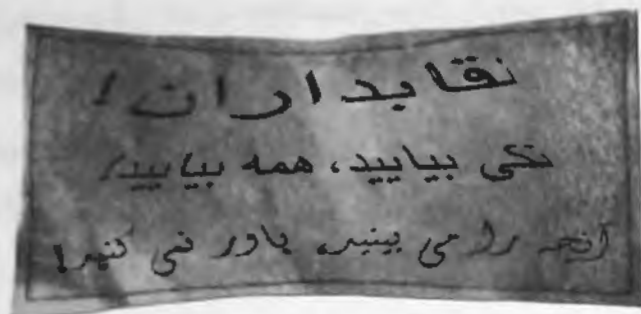 نقابداران!
تکی بیایید، همه بیایید!
آنچه را می بینید، باور نمی کنید!